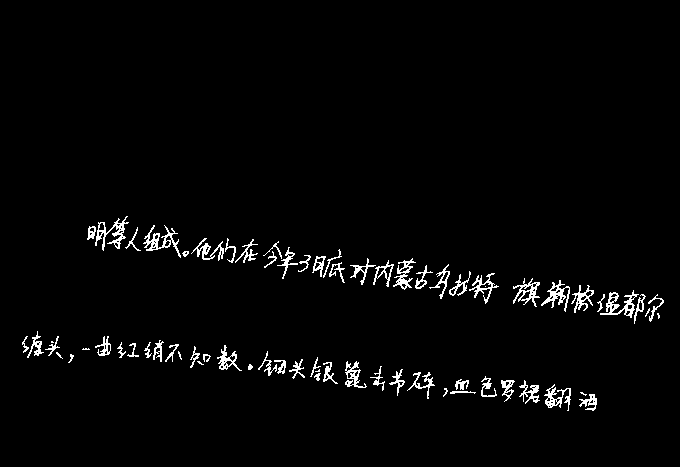 明等人组成。他们在今年3月底对内蒙古乌拉特 旗潮格温都尔
缠头，一曲红绡不知数。钿头银篦击节碎，血色罗裙翻酒